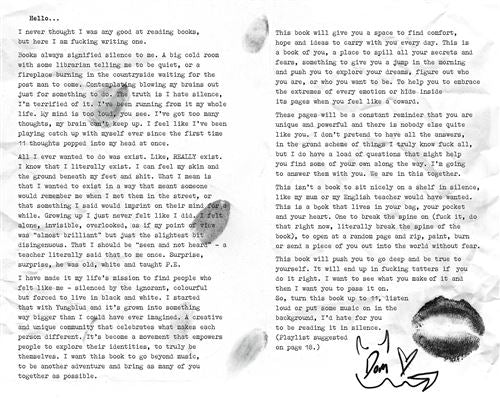 Hello...
I never thought I was any good at reading books,
but here I am fucking writing one.
Books always signified silence to me. A big cold room
with some librarian telling me to be quiet, or a
fireplace burning in the countryside waiting for the
post man to come. Contemplating blowing my brains out
just for something to do. The truth is I hate silence,
I'm terrified of it. I've been running from it my whole
life. My mind is too loud, you see. I've got too many
thoughts, my brain can't keep up. I feel like I've been
playing catch up with myself ever since the first time
11 thoughts popped into my head at once.
All I ever wanted to do was exist. Like, REALLY exist.
I know that I literally exist. I can feel my skin and
the ground beneath my feet and shit. What I mean is
that I wanted to exist in a way that meant someone
would remember me when I met them in the street, or
that something I said would imprint on their mind for a
while. Growing up I just never felt like I did. I felt
alone, invisible, overlooked, as if my point of view
was "almost brilliant" but just the slightest bit
disingenuous. That I should be "seen and not heard" - a
teacher literally said that to me once. Surprise,
surprise, he was old, white and taught P.E.
I have made it my life's mission to find people who
felt like me - silenced by the ignorant, colourful
but forced to live in black and white. I started
that with Yungblud and it's grown into something
way bigger than I could have ever imagined. A creative
and unique community that celebrates what makes each
person different. It's become a movement that empowers
people to explore their identities, to truly be
themselves. I want this book to go beyond music,
to be another adventure and bring as many of you
together as possible.
This book will give you a space to find comfort,
hope and ideas to carry with you every day. This is
a book of you, a place to spill all your secrets and
fears, something to give you a jump in the morning
and push you to explore your dreams, figure out who
you are, or who you want to be. To help you to embrace
the extremes of every emotion or hide inside
its pages when you feel like a coward.
These pages will be a constant reminder that you are
unique and powerful and there is nobody else quite
like you. I don't pretend to have all the answers,
in the grand scheme of things I truly know fuck all,
but I do have a load of questions that might help
you find some of your own along the way. I'm going
to answer them with you. We are in this together.
This isn't a book to sit nicely on a shelf in silence,
like my mum or my English teacher would have wanted.
This is a book that lives in your bag, your pocket
and your heart. One to break the spine on (fuck it, do
that right now, literally break the spine of the
book), to open at a random page and rip, paint, burn
or send a piece of you out into the world without fear.
This book will push you to go deep and be true to
yourself. It will end up in fucking tatters if you
do it right. I want to see what you make of it and
then I want you to pass it on.
So, turn this book up to 11, listen
loud or put some music on in the
background, I'd hate for you
to be reading it in silence.
(Playlist suggested
on page 18.)
Dom